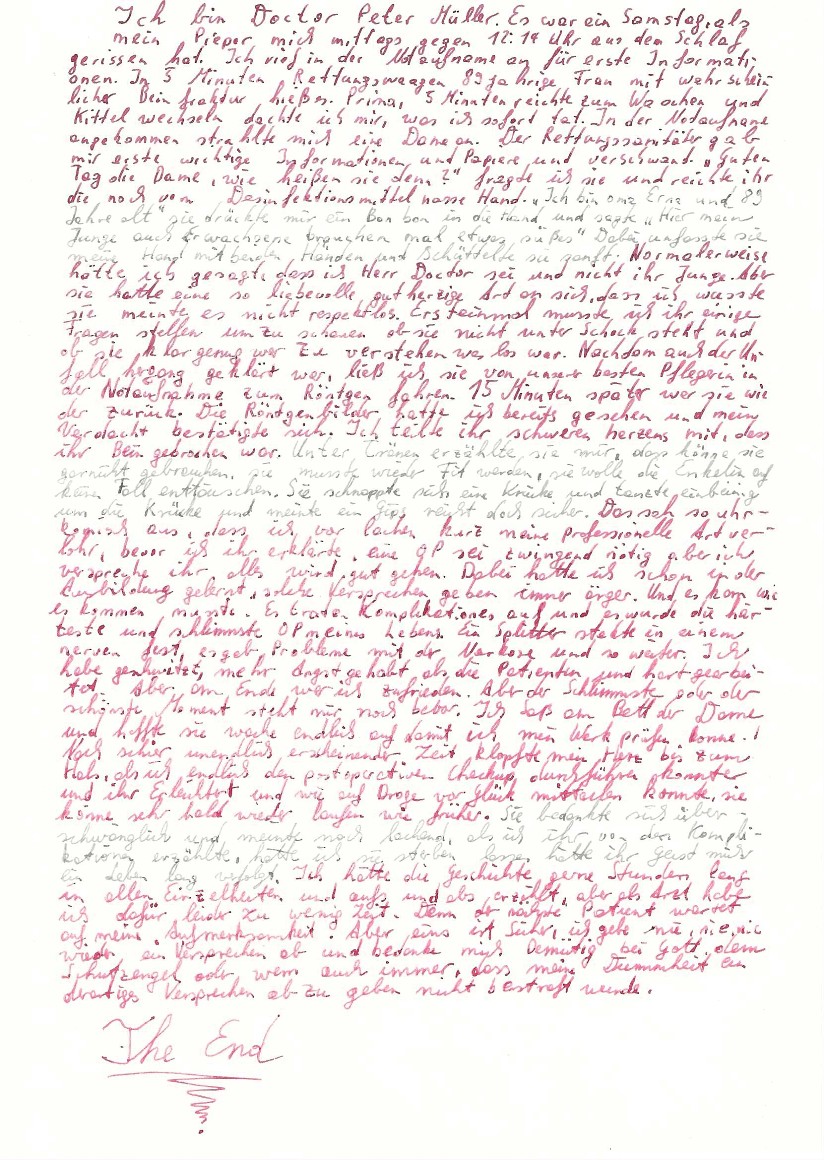 Ich bin Doctor Peter Müller. Es war ein Samstag, als
mein Pieper mich mittags gegen 12:14 Uhr aus dem Schlaf
gerissen hat. Ich rief in der Notaufname an für erste Informati-
onen. In 5 Minuten Rettungswaagen 89 jährige Frau mit wahrschein
licher Bein fraktur hießen. Prima, 5 Minuten reichte zum Waschen und
Kittel wechseln dachte ich mir, was ich sofort tat. In der Notaufname
angekommen strahlte mich eine Dame an. Der Rettungssanitäter gab
mir erste wichtige Informationen und Papiere und verschwand. „Guten
Tag die Dame, wie heißen sie denn?" fragte ich sie und reichte ihr
die noch vom Desinfektionsmittel nasse Hand. „Ich bin oma Erna und 89
Jahre alt" sie drückte mir ein Bon bon in die Hand und sagte „Hier mein
Junge auch Erwachsene brauchen mal etwas süßes" Dabei umfasste sie
meine Hand mit beiden Händen und Schüttelte sie sanft. Normalerweise
hätte ich gesagt, dass ich Herr Doctor sei und nicht ihr Junge. Aber
sie hatte eine so liebevolle, gutherzige Art an sich, dass ich wusste
sie meinte es nicht respektlos. Ersteinmal musste ich ihr einige
Fragen stellen um zu schauen ob sie nicht unter Schock steht und
ob sie klar genug war zu verstehen was los war. Nachdem auch der Un-
fall hergang geklärt war, ließ ich sie von unserer besten Pflegerin in
der Notaufnahme zum Röntgen fahren. 15 Minuten später war sie wie
der zurück. Die Röntgenbilder hatte ich bereits gesehen und mein
Verdacht bestätigte sich. Ich teilte ihr schweren herzens mit, dass
ihr Bein gebrochen war. Unter Tränen erzählte sie mir, das könne sie
garnicht gebrauchen, sie musste wieder Fit werden, sie wolle die Enkelin auf
keinen Fall enttäuschen. Sie schnappte sich eine Krücke und tanzte einbeinig
um die Krücke und meinte ein Gips reicht doch sicher. Das sah so uhr-
komisch aus, dass ich vor lachen kurz meine Professionelle Art ver-
lohr, bevor ich ihr erklärte, eine OP sei zwingend nötig aber ich
verspreche ihr alles wird gut gehen. Dabei hatte ich schon in der
Ausbildung gelernt, solche Versprechen geben immer ärger. Und es kam wie
es kommen musste. Es traten Komplikationes auf und es wurde die här-
teste und schlimmste OP meines Lebens. Ein Splitter steckte in einem
nerven fest, es gab Probleme mit der Narkose und so weiter. Ich
habe geschwitzt, mehr Angst gehabt als die Patientin und hart gearbei-
tet. Aber am Ende war ich zufrieden. Aber der Schlimmste oder der
schönste Moment steht mir noch bevor. Ich Saß am Bett der Dame
und hoffte sie wache endlich auf damit ich mein Werk prüfen konne.!
Nach schier unendlich erscheinender Zeit klopfte mein Herz bis zum
Hals, als ich endlich den postoperativen Checkup durchführen konnte
und ihr Erleichtert und wie auf Droge vor glück mitteilen konnte, sie
könne sehr bald wieder laufen wie früher. Sie bedankte sich über-
schwänglich und meinte noch lachend, als ich ihr von den Kompli-
kationen erzählte, hätte ich sie sterben lassen hätte ihr Geist mich
ein Leben lang verfolgt. Ich hätte die Geschichte gerne Stunden lang
in allen Einzelheiten und aufs und abs erzählt, aber als Arzt habe
ich dafür leider zu wenig Zeit. Denn der nächste Patient wartet
auf meine Aufmerksamkeit. Aber eins ist Sicher, ich gebe nie, nie, nie
wieder ein Versprechen ab und bedanke mich Demütig bei Gott, dem
Schutzengel oder wem auch immer, dass meine Dummheit ein
derartiges Versprechen ab zu geben nicht bestraft wurde.
The End